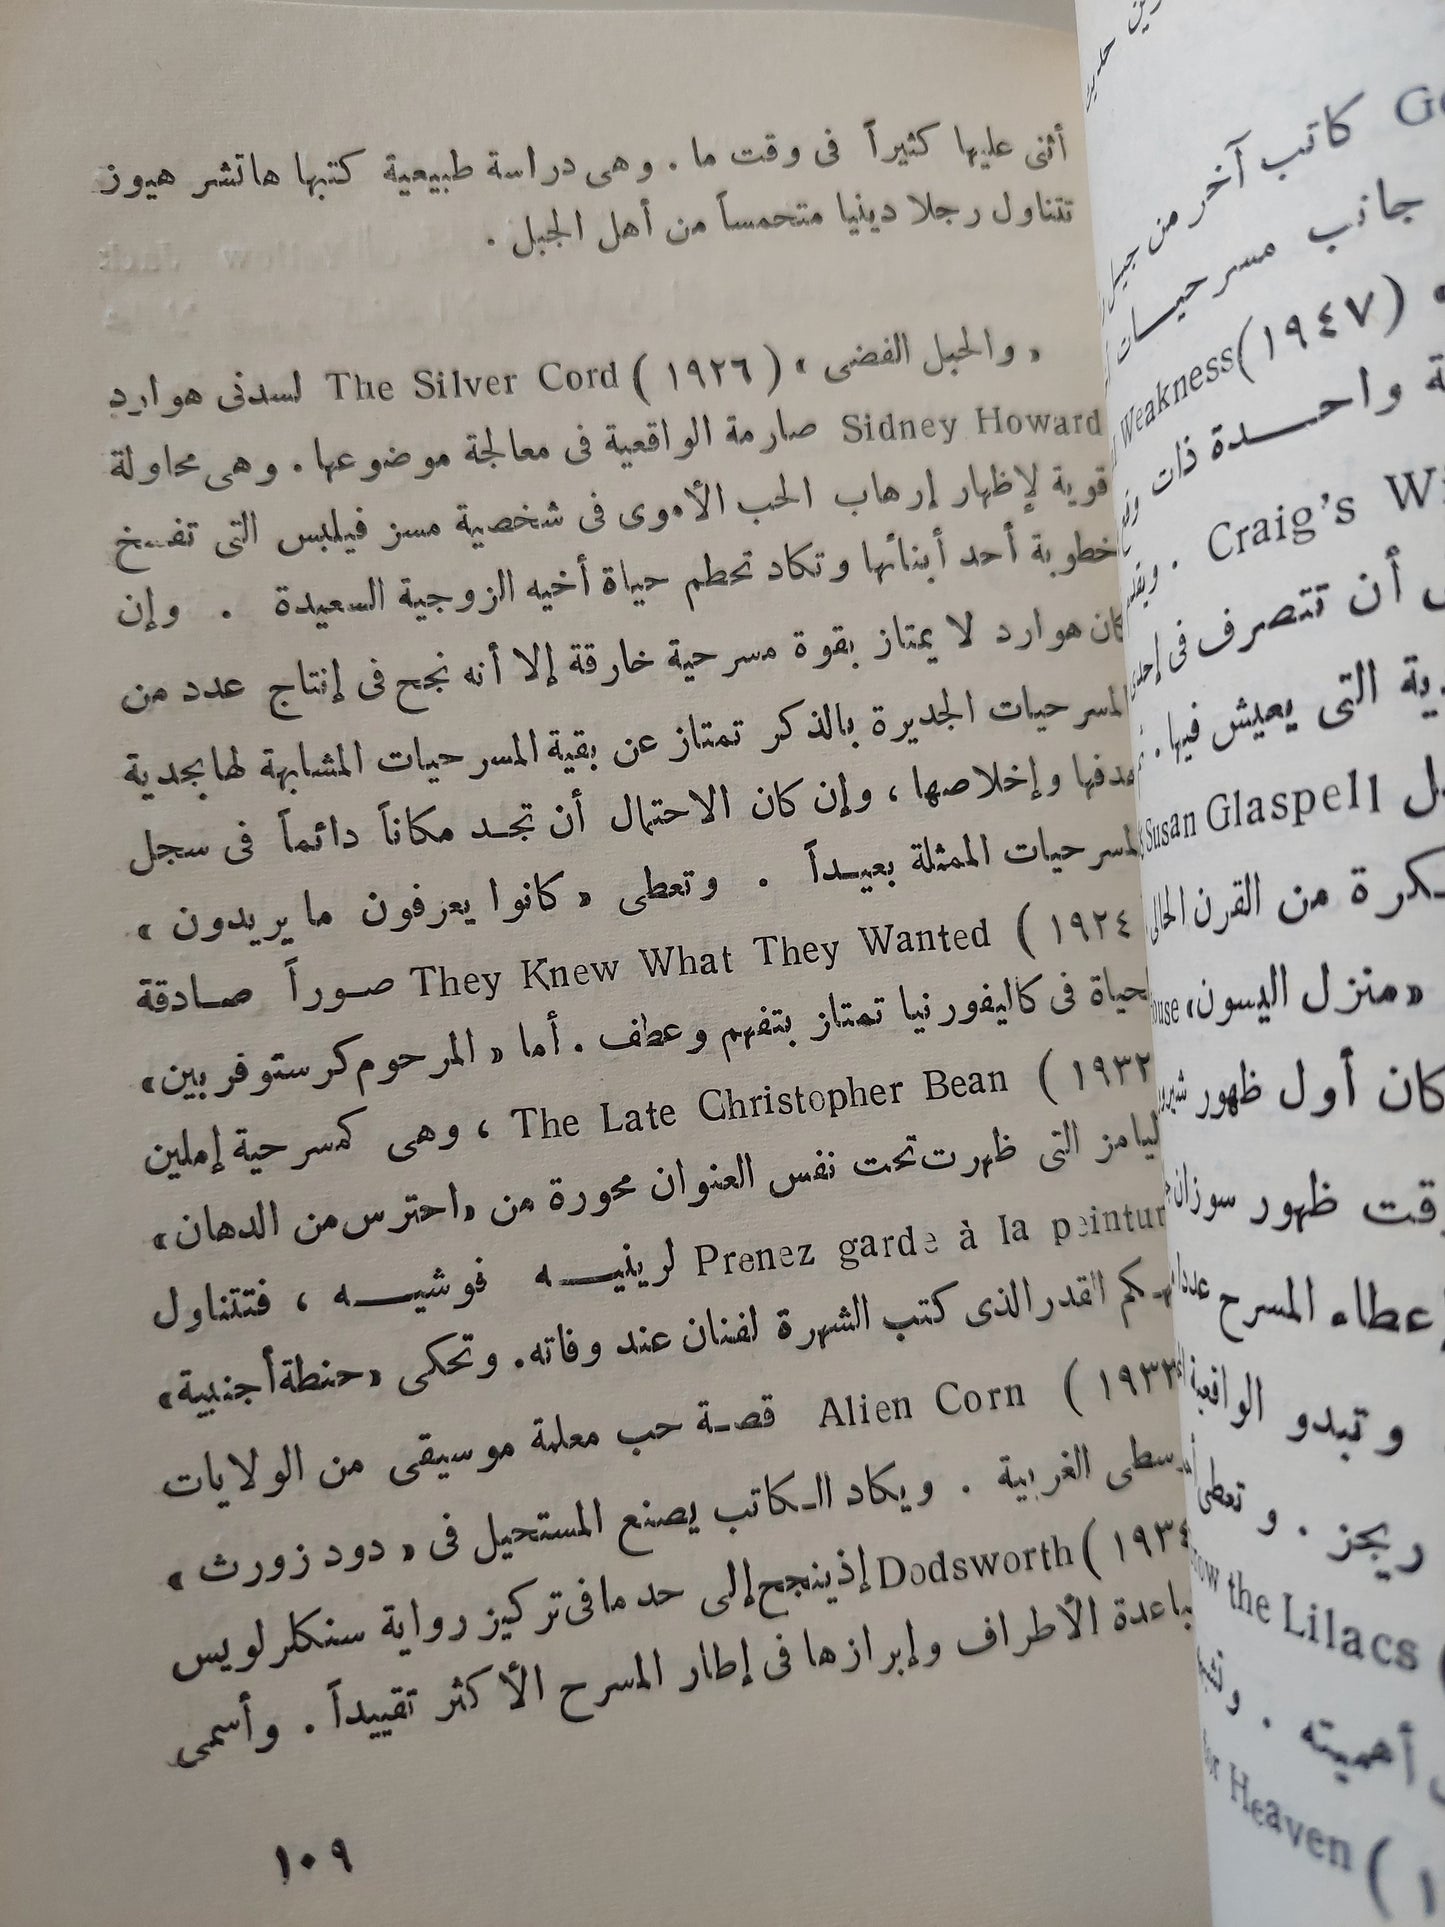 أثنى عليها كثيراً فى وقت ما . وهى دراسة طبيعية كتبها هاتشر هيوز
تتناول رجلا دينيا متحمساً من أهل الجبل .
« والحبل الفضى » ( ١٩٢٦ ) The Silver Cord لسدنى هوارد
Sidney Howard صارمة الواقعية فى معالجة موضوعها . وهى محاولة
قوية لإظهار إرهاب الحب الأموى فى شخصية مسز فيلبس التى تفسخ
خطوبة أحد أبنائها وتكاد تحطم حياة أخيه الزوجية السعيدة . وإن
كان هوارد لا يمتاز بقوة مسرحية خارقة إلا أنه نجح فى إنتاج عدد من
المسرحيات الجديرة بالذكر تمتاز عن بقية المسرحيات المشابهة لها بجدية
هدفها وإخلاصها ، وإن كان الاحتمال أن تجد مكاناً دائماً فى سجل
المسرحيات الممثلة بعيداً . وتعطى « كانوا يعرفون ما يريدون »
( ١٩٢٤ They Knew What They Wanted صوراً صادقة
لحياة فى كاليفورنيا تمتاز بتفهم وعطف . أما « المرحوم كرستوفر بين »
( ١٩٣٢ The Late Christopher Bean ، وهى كمسرحية إملين
ليامز التى ظهرت تحت نفس العنوان محورة من « احترس من الدهان »
Prenez garde à la peintur لرينيه فوشيه ، فتتناول
تهكم القدر الذى كتب الشهرة لفنان عند وفاته . وتحكى « حنطة أجنبية »
( ١٩٣٣ Alien Corn قصة حب معلمة موسيقى من الولايات
الوسطى الغربية . ويكاد الكاتب يصنع المستحيل فى « دود زورث »
( ١٩٣٤ Dodsworth إذ ينجح إلى حد ما فى تركيز رواية سنكلر لويس
باعدة الأطراف وإبرازها فى إطار المسرح الأكثر تقييداً . وأسمى
١٠٩
كاتب آخر من جيل
جانب مسرحيات
Weakness (١٩٤٧)
واحدة ذات
. Craig's
أن تتصرف فى
التى يعيش فيها .
Susan Glaspell
من القرن الحالى
« منزل اليسون »
كان أول ظهور
ظهور سوزان
إعطاء المسرح
وتبدو الواقعية
ريجز . وتعطى
the Lilacs
أهميته .
Heaven (